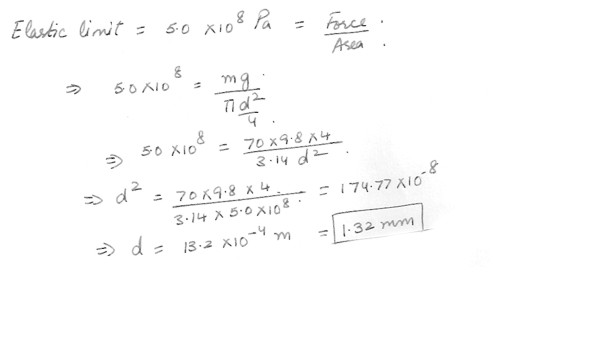 Elastic limit = 5.0 ×10⁸ Pa = Force / Area .
⇒ 5.0×10⁸ = mg / (πd²/4) .
⇒ 5.0 ×10⁸ = 70×9.8×4 / 3.14 d² .
⇒ d² = 70×9.8×4 / 3.14×5.0×10⁸ . = 174.77×10⁻⁸
⇒ d = 13.2 ×10⁻⁴ m = 1.32 mm